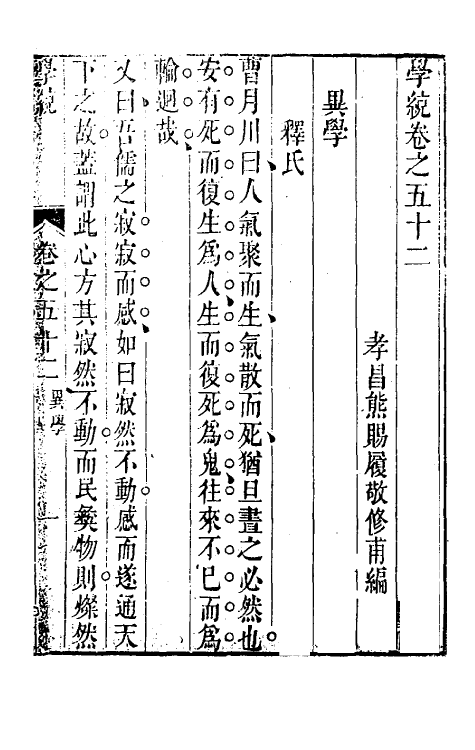 學統卷之五十二
孝昌熊賜履敬修甫編
異學
釋氏
曹月川曰人氣聚而生氣散而死猶旦晝之必然也
安有死而復生爲人生而復死爲鬼往來不已而爲
輪迴哉
又曰吾儒之寂寂而感如曰寂然不動感而遂通天
下之故蓋謂此心方其寂然不動而民彝物則燦然
學統
卷之五十二
異學
一